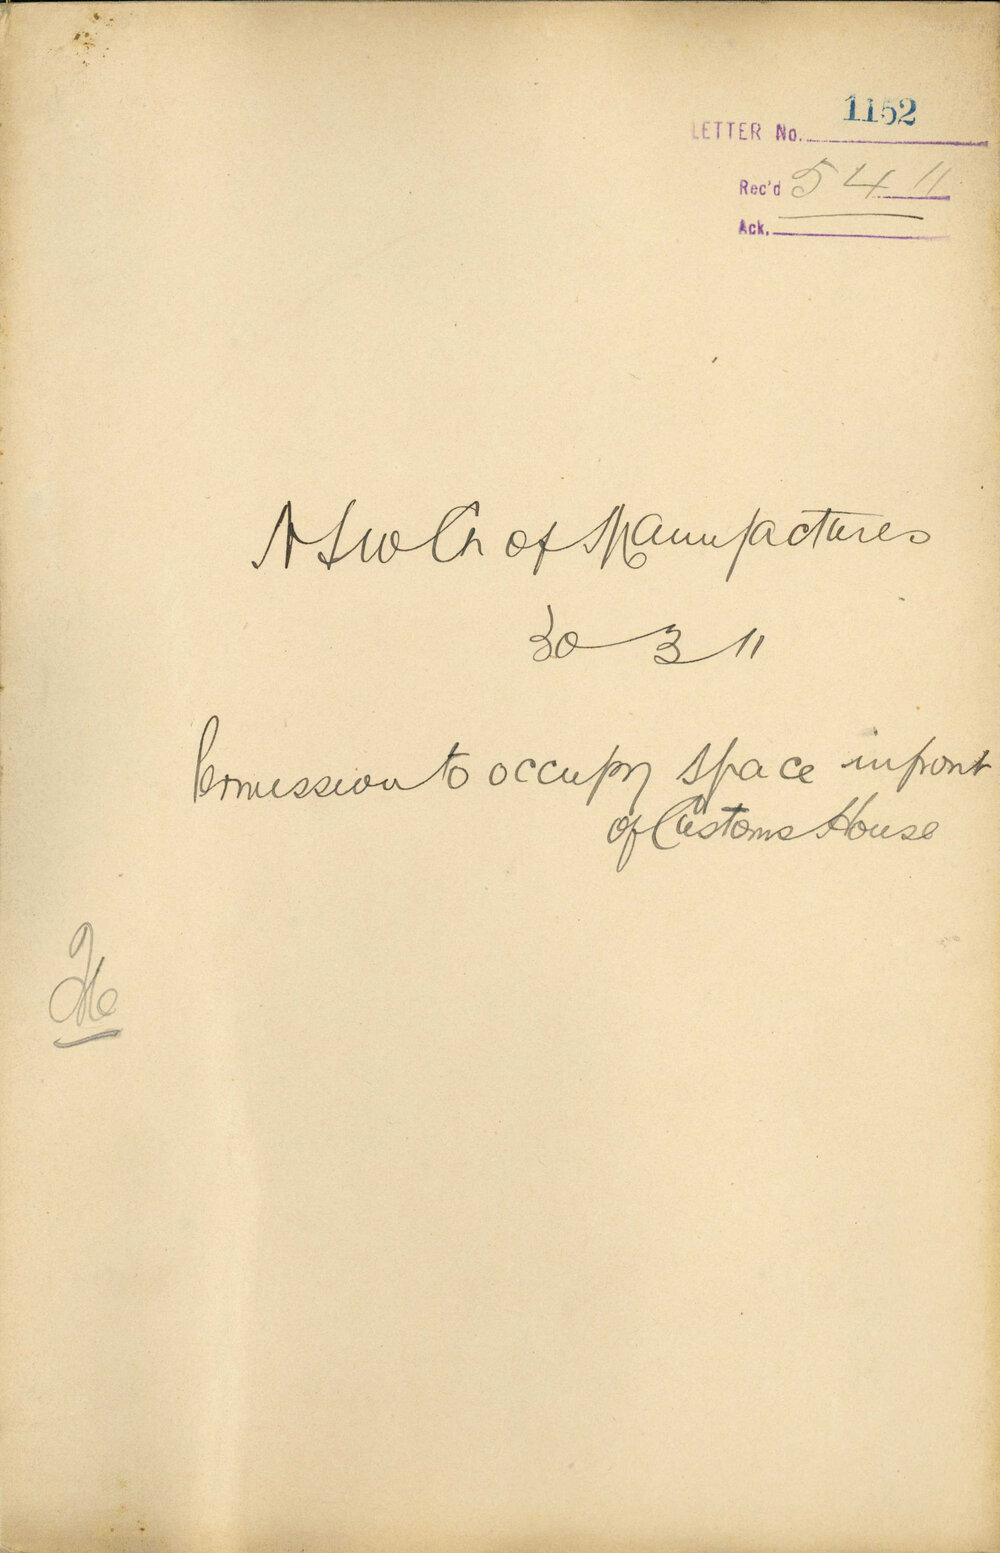 LETTER No. 1152
Rec'd 5 4 11
Ack.
N S W Ch of Manufactures
30 3 11
Permission to occupy space in front
of Customs House